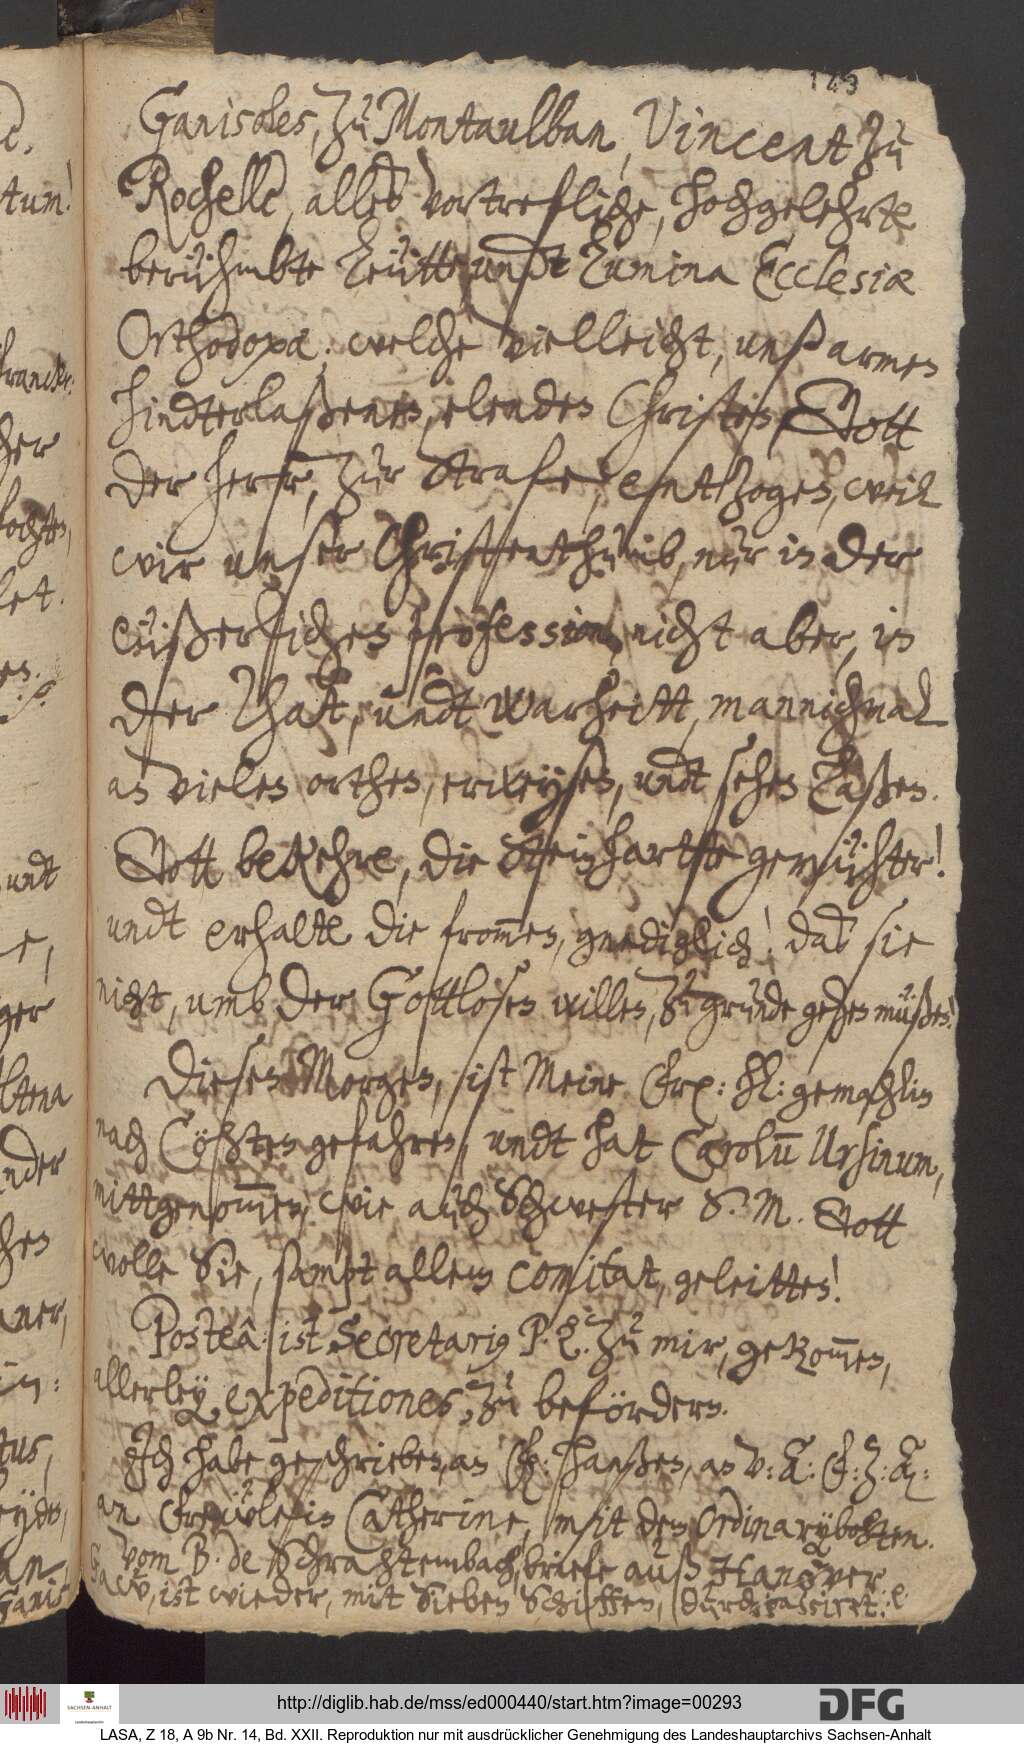 149
Garisoles, zu Montaulban, Vincent zu
Rochelle, alles vortrefliche, hochgelehrte
berühmbte Leütte, undt Lumina Ecclesiæ
Orthodoxæ. welche vielleicht, unß armen
hindterlaßenen, elenden Christen, Gott
der herr, zur Strafe, entzogen, weil
wir unser Christenthumb, nur in der
eüßerlichen profession, nicht aber, in
der That, undt warheitt, mannichmal
an vielen orthen, erweysen, undt sehen laßen.
Gott bekehre, die Steinhartte gemühter!
undt erhalte die from̅en, gnediglich! das sie
nicht, umb der Gottlosen willen, zu grunde gehen müßen!
Diesen Morgen, ist Meine frl: hl: gemahlin
nach Cöhten gefahren, undt hat Carolu̅ Ursinum,
mittgenom̅en, wie auch Schwester S. M. Gott
wolle Sie, sampt allem comitat, geleitten!
Posteâ: ist Secretarius P. L. zu mir, gekom̅en,
allerley expeditiones, zu befördern.
Ich habe geschrieben, an
an Freẅlein Catherine, mit dem Ordinarÿbohten.
vom B. de Schrahtembach, briefe auß Hanover
ist wieder, mit Sieben Schiffen, durchpassiret:
http://diglib.hab.de/mss/ed000440/start.htm?image=00293
SACHSEN-ANHALT
DFG
LASA, Z 18, A 9b Nr. 14, Bd. XXII. Reproduktion nur mit ausdrücklicher Genehmigung des Landeshauptarchivs Sachsen-Anhalt